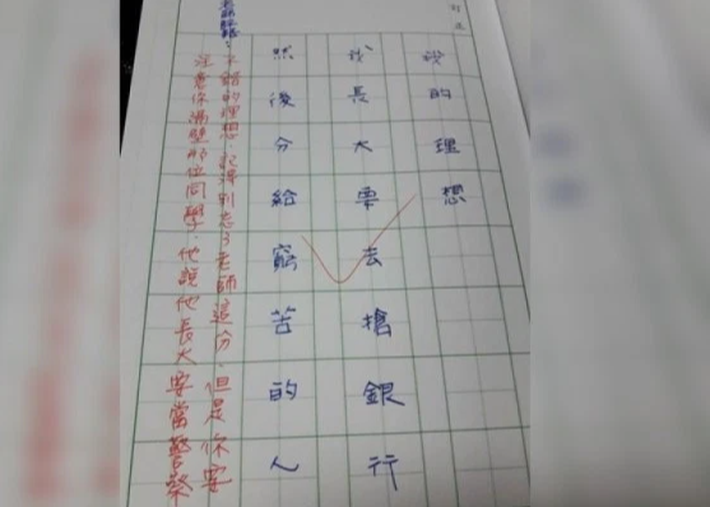 我的理想
我長大要去搶銀行
然後分給窮苦的人
老師評語：
不錯的理想．記得別忘了老師這分．但是你要
注意你隔壁那位同學．他說他長大要當警察